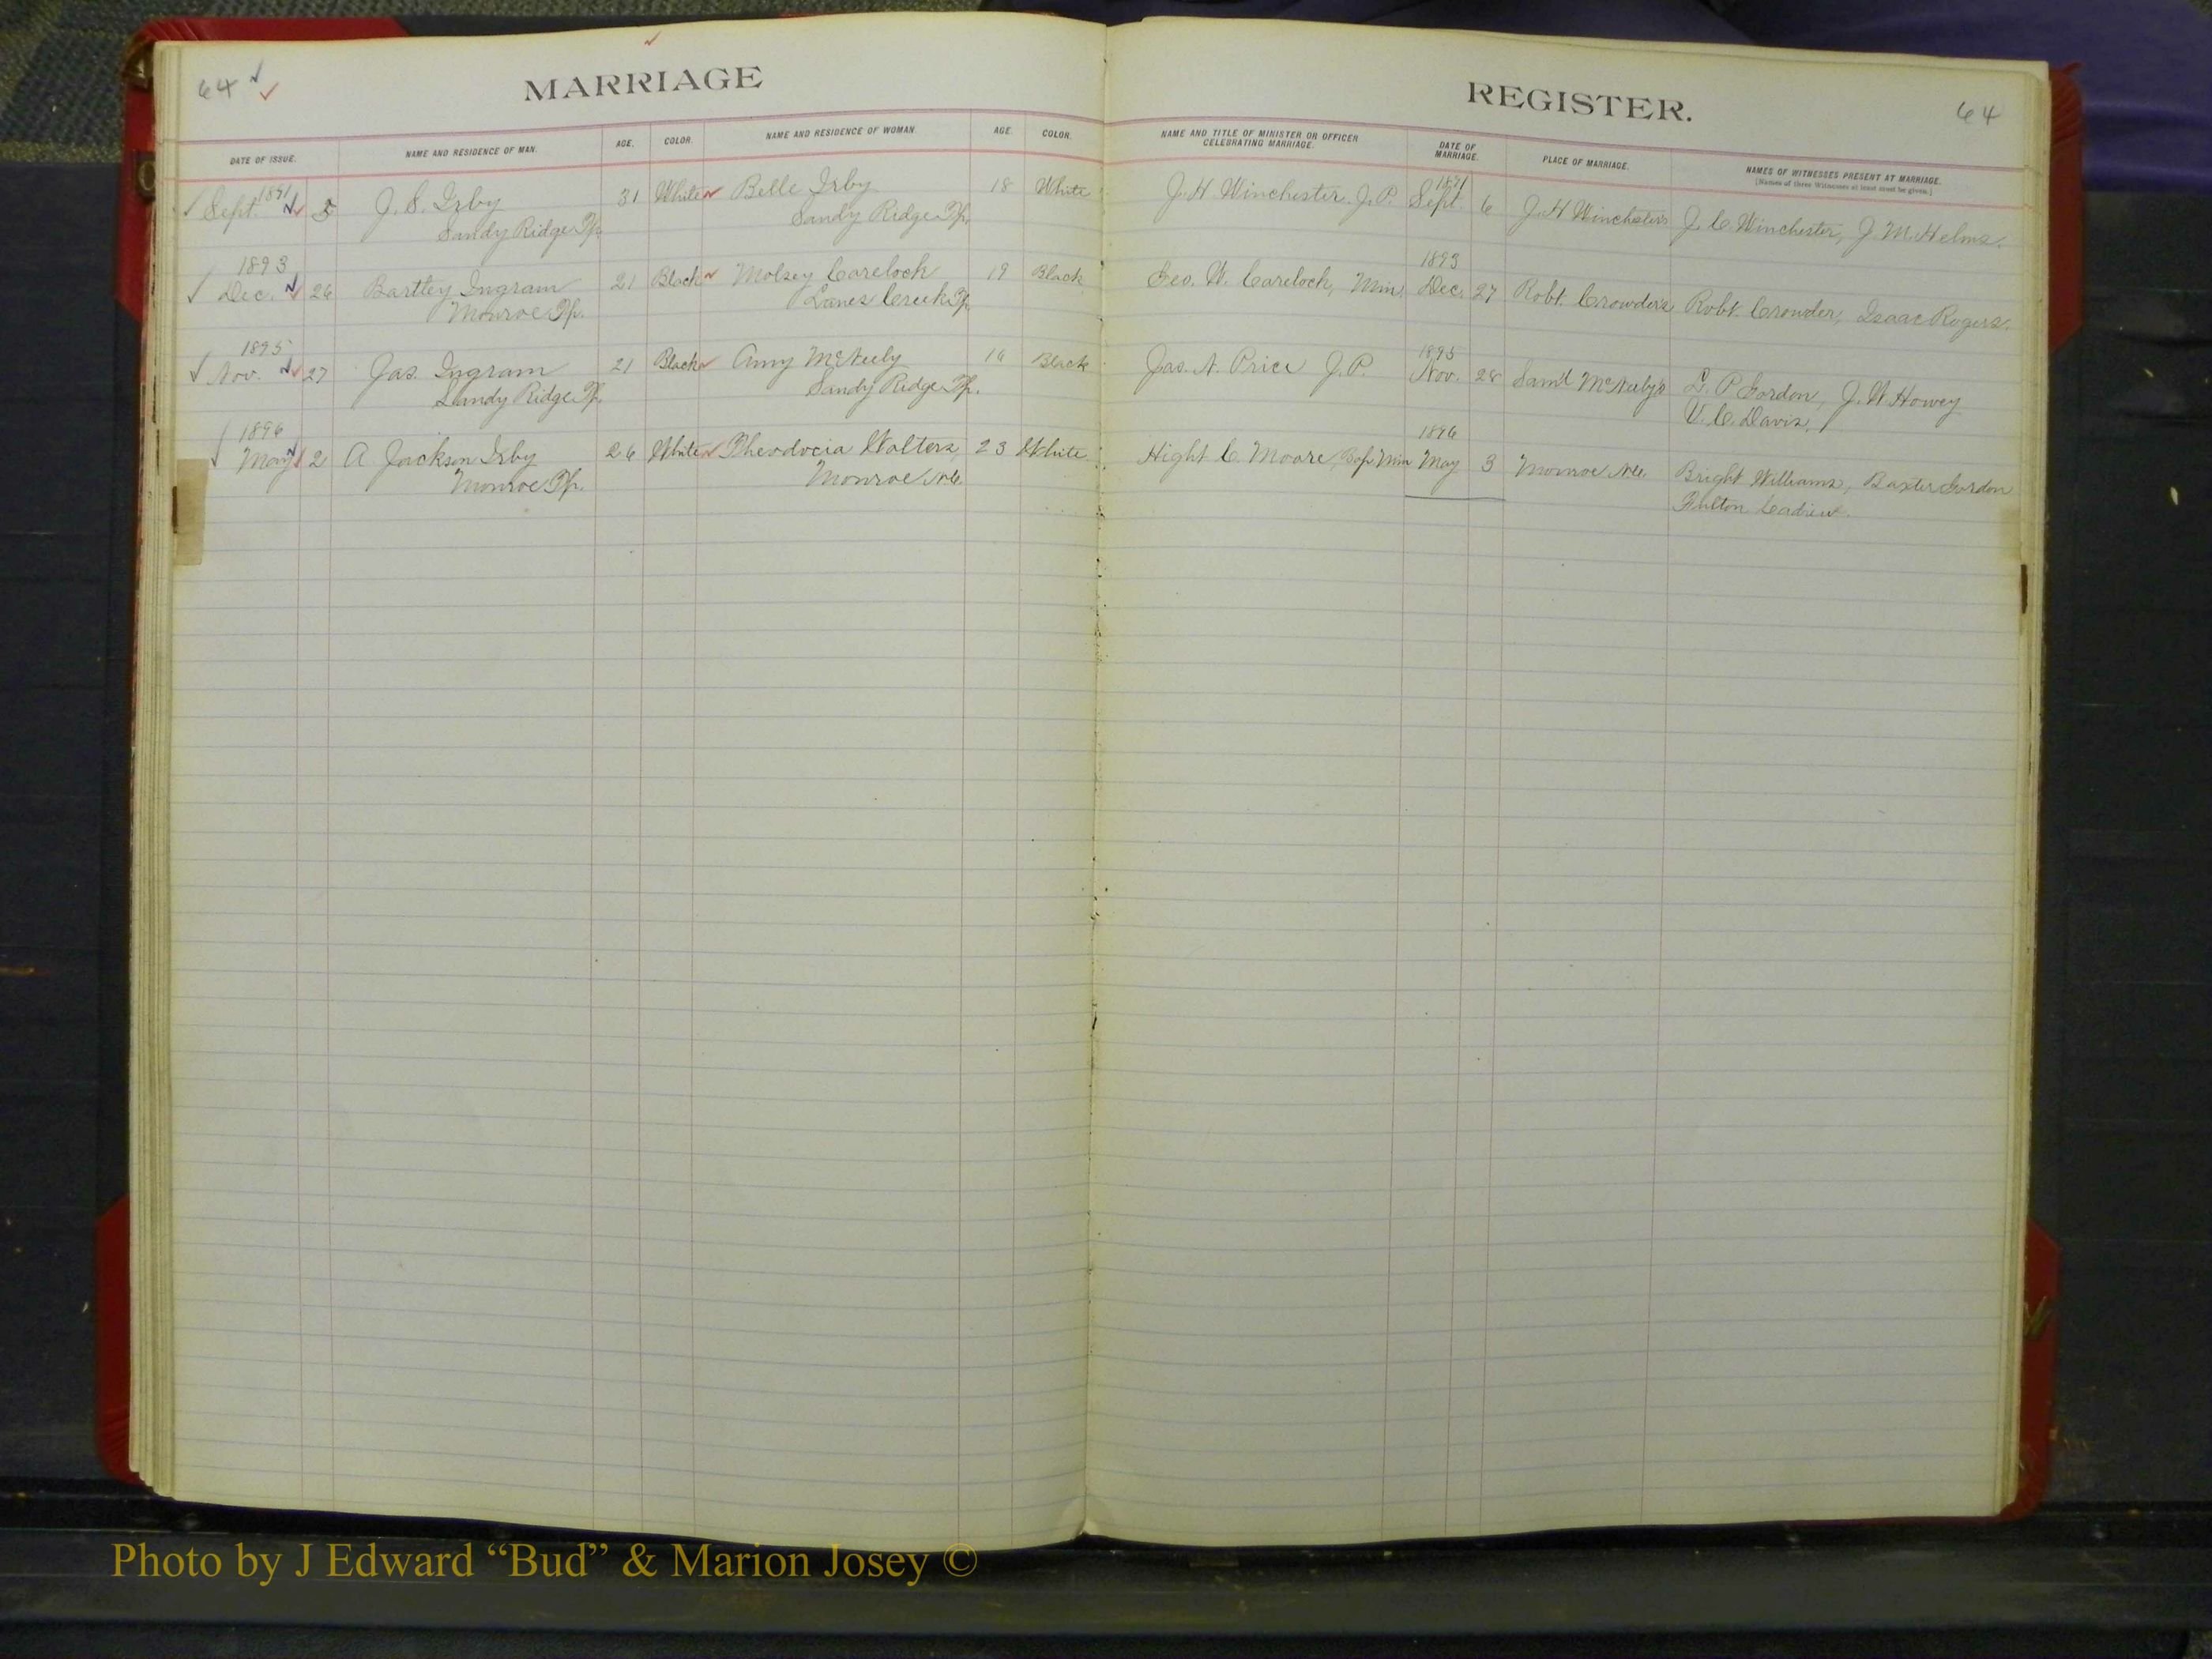 64
MARRIAGE
REGISTER.
64
DATE OF ISSUE. NAME AND RESIDENCE OF MAN. AGE. COLOR. NAME AND RESIDENCE OF WOMAN AGE. COLOR. NAME AND TITLE OF MINISTER OR OFFICER CELEBRATING MARRIAGE. DATE OF MARRIAGE. PLACE OF MARRIAGE. NAMES OF WITNESSES PRESENT AT MARRIAGE.
[Names of three Witnesses at least must be given.]
1891 1891
Sept. 5 J. S. Irby 31 White Belle Irby 18 White J. H Winchester J. P. Sept. 6 J. H Winchesters J. C. Winchester, J. M. Helms.
Sandy Ridge Tp. Sandy Ridge Tp.
1893 1893
Dec. 26 Bartley Ingram 21 Black Molsey Carelock 19 Black Geo. W. Carelock, Min. Dec. 27 Robt. Crowders Robt. Crowder, Isaac Rogers.
Monroe Tp. Lanes Creek Tp.
1895 1895
Nov. 27 Jas. Ingram 21 Black Amy McNeely Black Jas. A. Price J. P. Nov. 28 Saml McNeely's L. P. Gordon, J. W Howey
Sandy Ridge Tp. Sandy Ridge Tp. V. C. Davis.
1896 1896
May 2 A Jackson Irby 26 White Theodocia Walters, 23 White Hight C. Moore, Bap. Min May 3 Monroe N.C. Bright Williams, Baxter Gordon
Monroe Tp. Monroe N.C. Fulton
Photo by J Edward “Bud” & Marion Josey ©